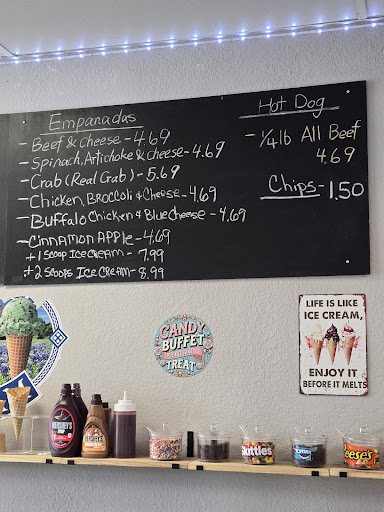 Empanadas
- Beef & Cheese - 4.69
- Spinach, Artichoke & cheese - 4.69
- Crab (Real Crab) - 5.69
- Chicken, Broccoli & Cheese - 4.69
- Buffalo Chicken & Blue Cheese - 4.69
- Cinnamon Apple - 4.69
+ 1 Scoop Ice Cream - 7.99
+ 2 Scoops Ice Cream - 8.99
Hot Dog
- 1/4 lb All Beef
4.69
Chips - 1.50
CANDY
BUFFET
TREAT
LIFE IS LIKE
ICE CREAM,
ENJOY IT
BEFORE IT MELTS
HERSHEY'S
HERSHEY'S
Skittles
OREO
Reese's